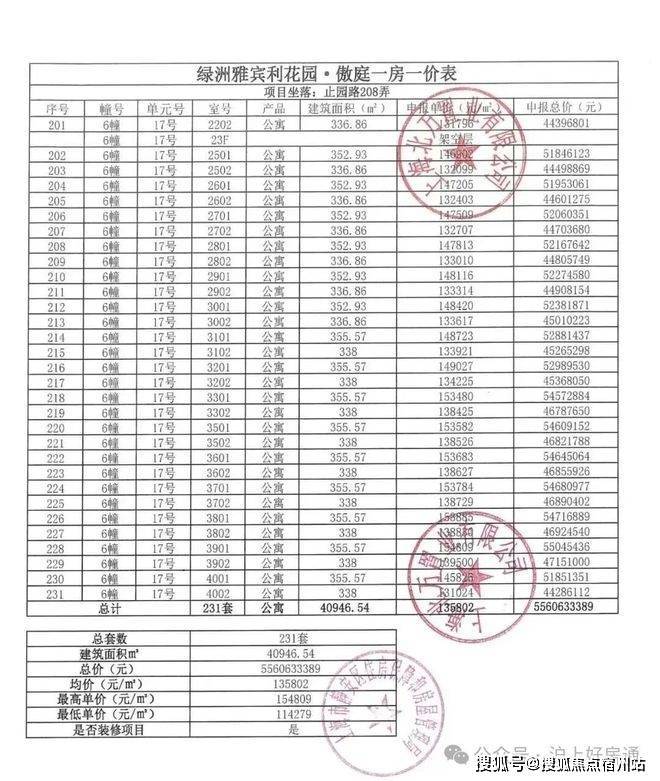 绿洲雅宾利花园·傲庭一房一价表
项目坐落：止园路208弄
序号 幢号 单元号 室号 产品 建筑面积（㎡） 申报单价（元/㎡） 申报总价（元）
201 6幢 17号 2202 公寓 336.86 131796 44396801
6幢 17号 23F 架空层
202 6幢 17号 2501 公寓 352.93 146902 51846123
203 6幢 17号 2502 公寓 336.86 132099 44498869
204 6幢 17号 2601 公寓 352.93 147205 51953061
205 6幢 17号 2602 公寓 336.86 132403 44601275
206 6幢 17号 2701 公寓 352.93 147509 52060351
207 6幢 17号 2702 公寓 336.86 132707 44703680
208 6幢 17号 2801 公寓 352.93 147813 52167642
209 6幢 17号 2802 公寓 336.86 133010 44805749
210 6幢 17号 2901 公寓 352.93 148116 52274580
211 6幢 17号 2902 公寓 336.86 133314 44908154
212 6幢 17号 3001 公寓 352.93 148420 52381871
213 6幢 17号 3002 公寓 336.86 133617 45010223
214 6幢 17号 3101 公寓 355.57 148723 52881437
215 6幢 17号 3102 公寓 338 133921 45265298
216 6幢 17号 3201 公寓 355.57 149027 52989530
217 6幢 17号 3202 公寓 338 134225 45368050
218 6幢 17号 3301 公寓 355.57 153480 54572884
219 6幢 17号 3302 公寓 338 138425 46787650
220 6幢 17号 3501 公寓 355.57 153582 54609152
221 6幢 17号 3502 公寓 338 138526 46821788
222 6幢 17号 3601 公寓 355.57 153683 54645064
223 6幢 17号 3602 公寓 338 138627 46855926
224 6幢 17号 3701 公寓 355.57 153784 54680977
225 6幢 17号 3702 公寓 338 138729 46890402
226 6幢 17号 3801 公寓 355.57 153885 54716889
227 6幢 17号 3802 公寓 338 138830 46924540
228 6幢 17号 3901 公寓 355.57 154809 55045436
229 6幢 17号 3902 公寓 338 139500 47151000
230 6幢 17号 4001 公寓 355.57 145826 51851351
231 6幢 17号 4002 公寓 338 131024 44286112
总计 231套 公寓 40946.54 135802 5560633389
上海北万置业有限公司
上海北万置业有限公司
总套数 231套
建筑面积㎡ 40946.54
总价（元） 5560633389
均价（元/㎡） 135802
最高单价（元/㎡） 154809
最低单价（元/㎡） 114279
是否装修项目 是
上海市静安区住房保障和房屋管理局
公众号·沪上好房通
搜狐号@搜狐焦点宿州站